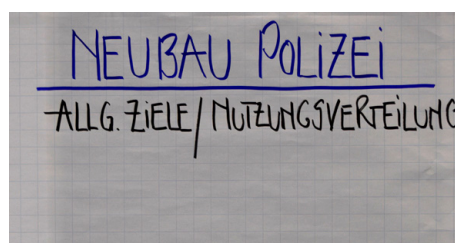 NEUBAU POLiZEi
ALLG. ZiELE / NUTZUNGSVERTEiLUNG